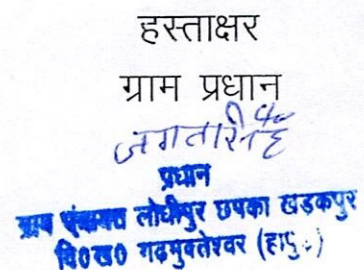 हस्ताक्षर
ग्राम प्रधान
जगतारसिंह
प्रधान
ग्राम पंचायत लोधीपुर छपका खड़कपुर
वि0ख0 गढ़मुक्तेश्वर (हापुड़)